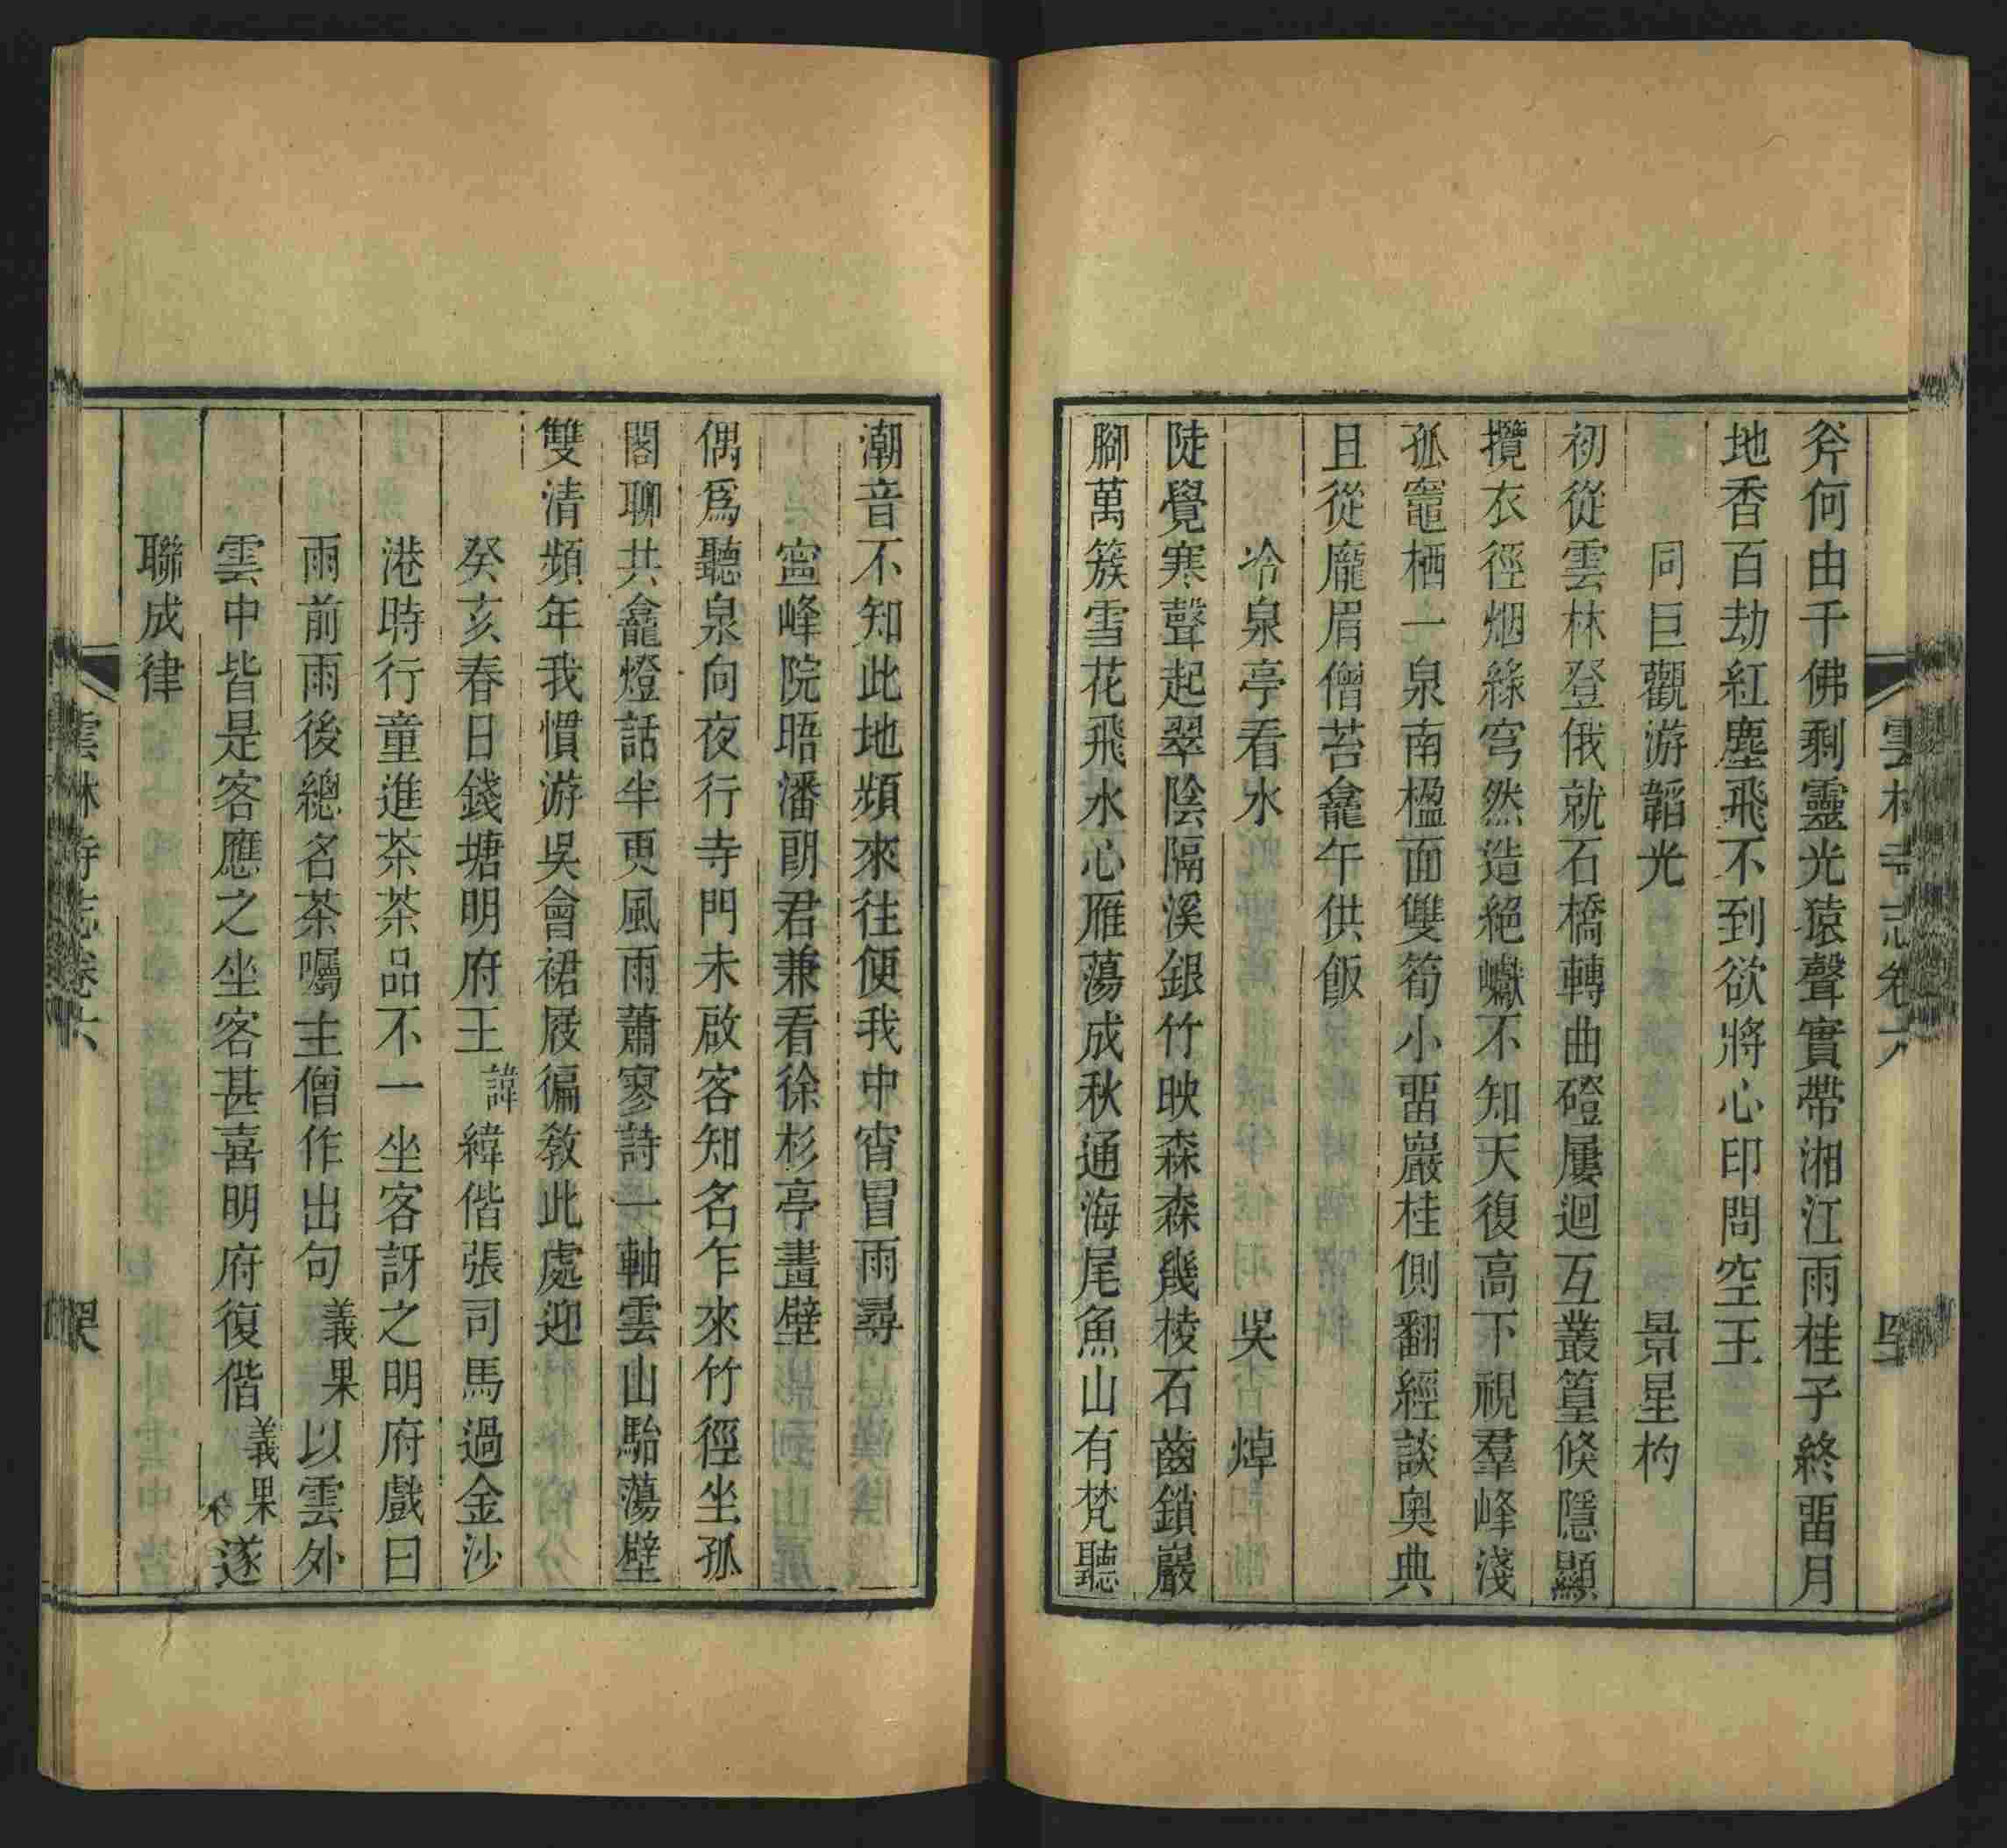 斧何由千佛剩靈光猿聲實帶湘江雨桂子終畱月
地香百劫紅塵飛不到欲將心印問空王
同巨觀游韜光 景星杓
初從雲林登俄就石橋轉曲磴屢迴互叢篁倏隱顯
攬衣徑烟綠穹然造絕巘不知天復高下視羣峰淺
孤竈栖一泉南楹面雙筍小畱巖桂側翻經談奧典
且從龐眉僧苔龕午供飯
冷泉亭看水 吳焯
陡覺寒聲起翠陰隔溪銀竹映森森幾棱石齒鎖巖
腳萬簇雪花飛水心雁蕩成秋通海尾魚山有梵聽
潮音不知此地頻來往便我中宵冒雨尋
寍峰院晤潘朗君兼看徐杉亭畫壁
偶爲聽泉向夜行寺門未啟客知名乍來竹徑坐孤
閣聊共龕燈話半更風雨蕭寥詩一軸雲山駘蕩壁
雙清頻年我慣游吳會裙屐徧敎此處迎
癸亥春日錢塘明府王諱緯偕張司馬過金沙
港時行童進茶茶品不一坐客訝之明府戲曰
雨前雨後總名茶囑主僧作出句義果以雲外
雲中皆是客應之坐客甚喜明府復偕義果遂
聯成律
雲林寺志卷六